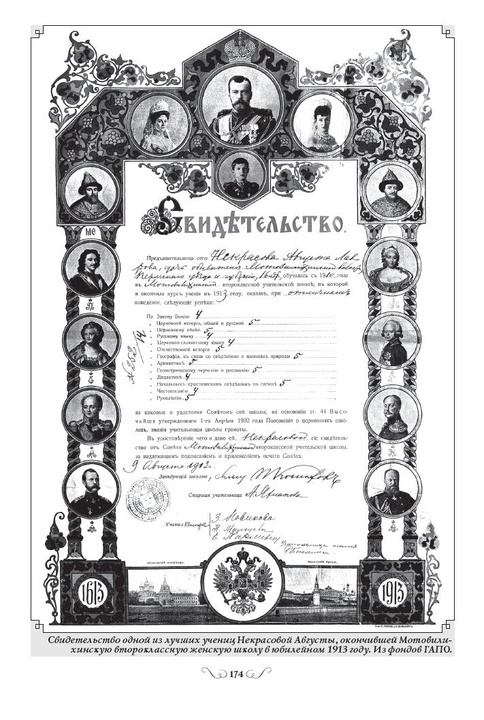 Свидѣтельство.
Предъявительница сего Некрасова Августа Лав-
обучалась съ 1910 года
въ Мотовилихинской второклассной учительской школѣ, въ которой
и окончила курсъ ученія въ 1913 году, оказавъ, при отличномъ
поведеніи, слѣдующіе успѣхи:
По Закону Божію 4
" Церковной исторіи, общей и русской 5
" Церковному пѣнію 5
" Русскому языку 4
" Церковно-славянскому языку 4
" Отечественной исторіи 5
" Географіи, въ связи со свѣдѣніями о явленіяхъ природы 5
" Ариѳметикѣ 5
" Геометрическому черченію и рисованію 5
" Дидактикѣ 4
" Начальнымъ практическимъ свѣдѣніямъ по гигіенѣ 5
" Чистописанію 4
" Рукодѣлію 5
за каковые и удостоена Совѣтомъ сей школы, на основаніи ст. 44 Высо-
чайше утвержденнаго 1-го Апрѣля 1902 года Положенія о церковныхъ шко-
лахъ, званія учительницы школы грамоты.
Въ удостовѣреніе чего и дано ей, Некрасовой, сіе свидѣтельство
отъ Совѣта Мотовилихинской второклассной учительской школы,
за надлежащимъ подписаніемъ и приложеніемъ печати Совѣта.
9 Августа 1913 г.
Завѣдующій школою,
Старшая учительница
З. Новикова
1613
1913
Свидетельство одной из лучших учениц Некрасовой Августы, окончившей Мотовили-
хинскую второклассную женскую школу в юбилейном 1913 году. Из фондов ГАПО.
174